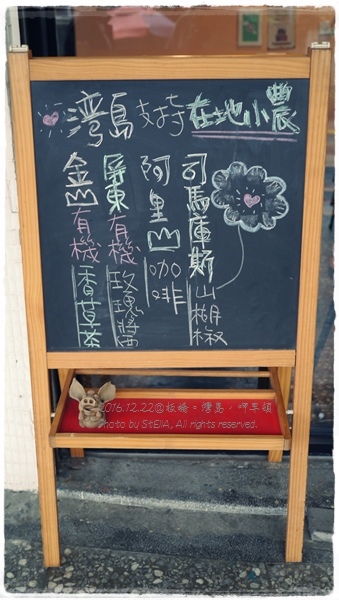 湾島 支持 在地小農
司馬庫斯山胡椒
阿里山咖啡
屏東有機玫瑰醬
金山有機香草茶
2016.12.22@板橋。灣島，呷早頓
Photo by StEllA, All rights reserved.